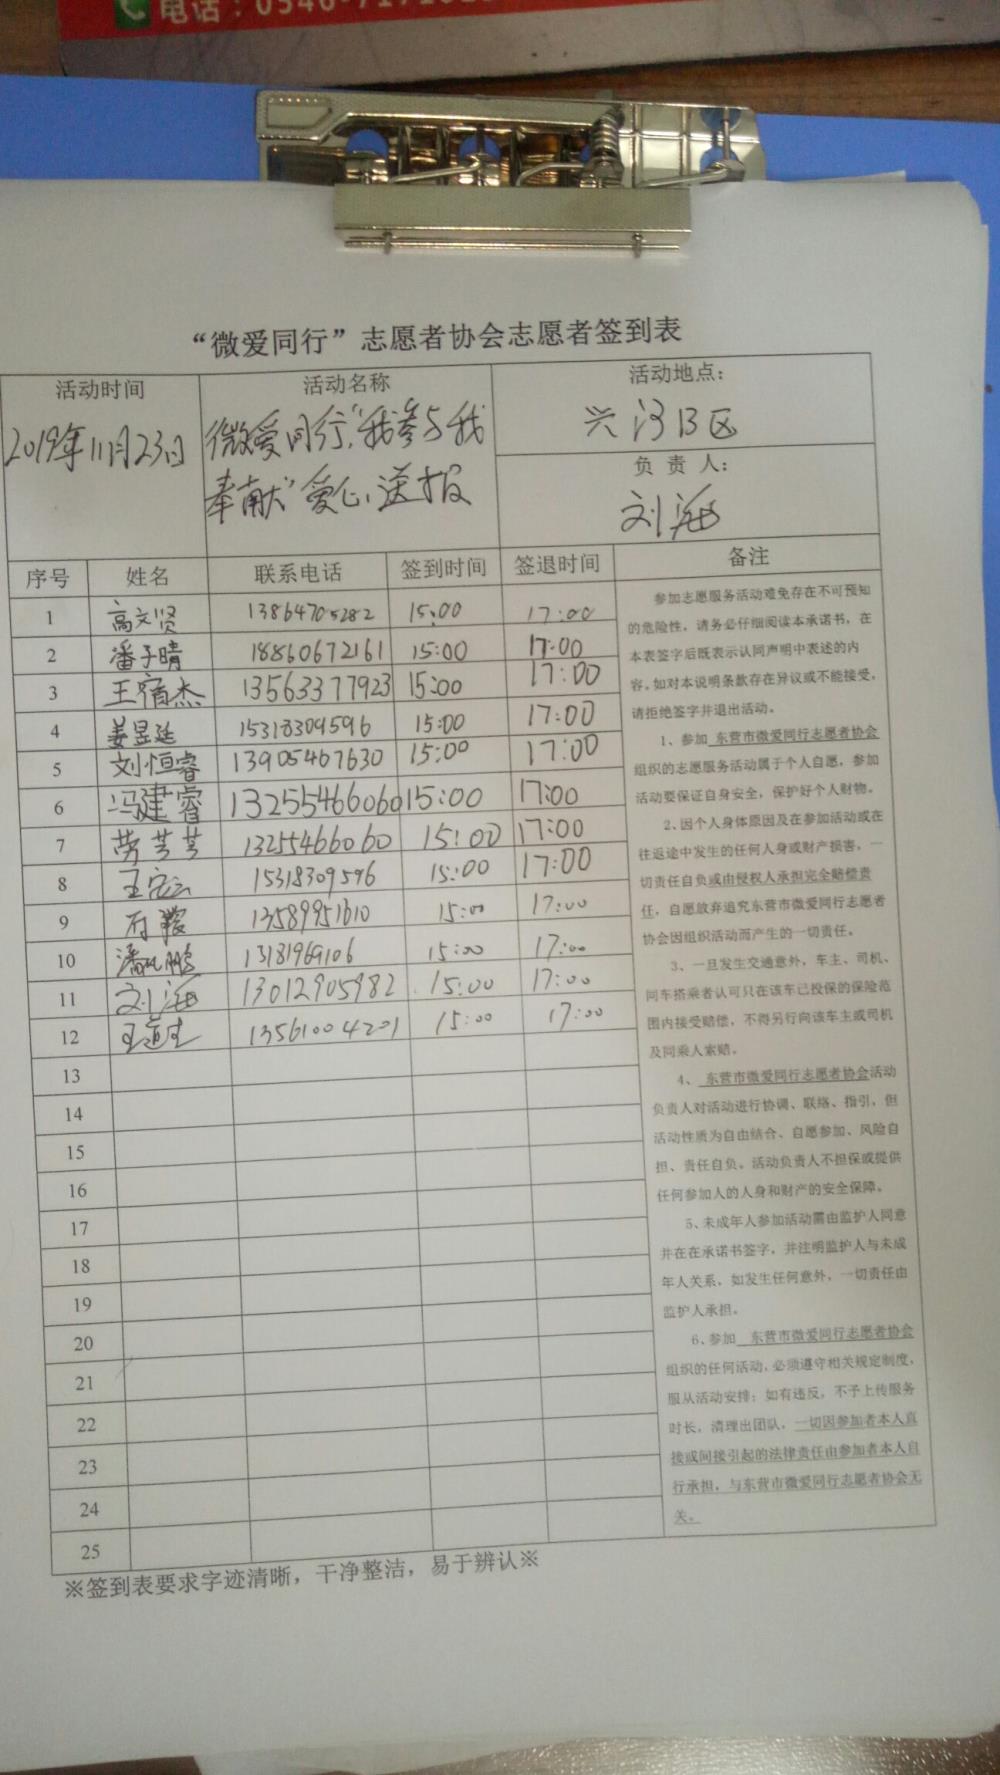 电话：0546-7171
“微爱同行”志愿者协会志愿者签到表
活动时间
2019年11月23日
活动名称
微爱同行，“我参与我
奉献”爱心送报
活动地点：
兴河B区
负责人：
刘海
序号 姓名 联系电话 签到时间 签退时间 备注
1 高文贤 13864705282 15:00 17:00
2 潘子晴 18860672161 15:00 17:00
3 王宿杰 13563377923 15:00 17:00
4 姜昱廷 15318309596 15:00 17:00
5 刘恒睿 13905467630 15:00 17:00
6 冯建睿 13255466060 15:00 17:00
7 劳芳芳 13255466060 15:00 17:00
8 15318309596 15:00 17:00
9 13589951610 15:00 17:00
10 13181969106 15:00 17:00
11 刘海 13012905982 15:00 17:00
12 13561004201 15:00 17:00
13
14
15
16
17
18
19
20
21
22
23
24
25
参加志愿服务活动难免存在不可预知
的危险性，请务必仔细阅读本承诺书，在
本表签字后既表示认同声明中表述的内
容。如对本说明条款存在异议或不能接受，
请拒绝签字并退出活动。
1、参加 东营市微爱同行志愿者协会
组织的志愿服务活动属于个人自愿，参加
活动要保证自身安全，保护好个人财物。
2、因个人身体原因及在参加活动或在
往返途中发生的任何人身或财产损害，一
切责任自负或由侵权人承担完全赔偿责
任，自愿放弃追究东营市微爱同行志愿者
协会因组织活动而产生的一切责任。
3、一旦发生交通意外，车主、司机、
同车搭乘者认可只在该车已投保的保险范
围内接受赔偿，不得另行向该车主或司机
及同乘人索赔。
4、 东营市微爱同行志愿者协会活动
负责人对活动进行协调、联络、指引，但
活动性质为自由结合、自愿参加、风险自
担、责任自负。活动负责人不担保或提供
任何参加人的人身和财产的安全保障。
5、未成年人参加活动需由监护人同意
并在在承诺书签字，并注明监护人与未成
年人关系，如发生任何意外，一切责任由
监护人承担。
6、参加 东营市微爱同行志愿者协会
组织的任何活动，必须遵守相关规定制度，
服从活动安排；如有违反，不予上传服务
时长，清理出团队，一切因参加者本人直
接或间接引起的法律责任由参加者本人自
行承担，与东营市微爱同行志愿者协会无
关。
※签到表要求字迹清晰，干净整洁，易于辨认※